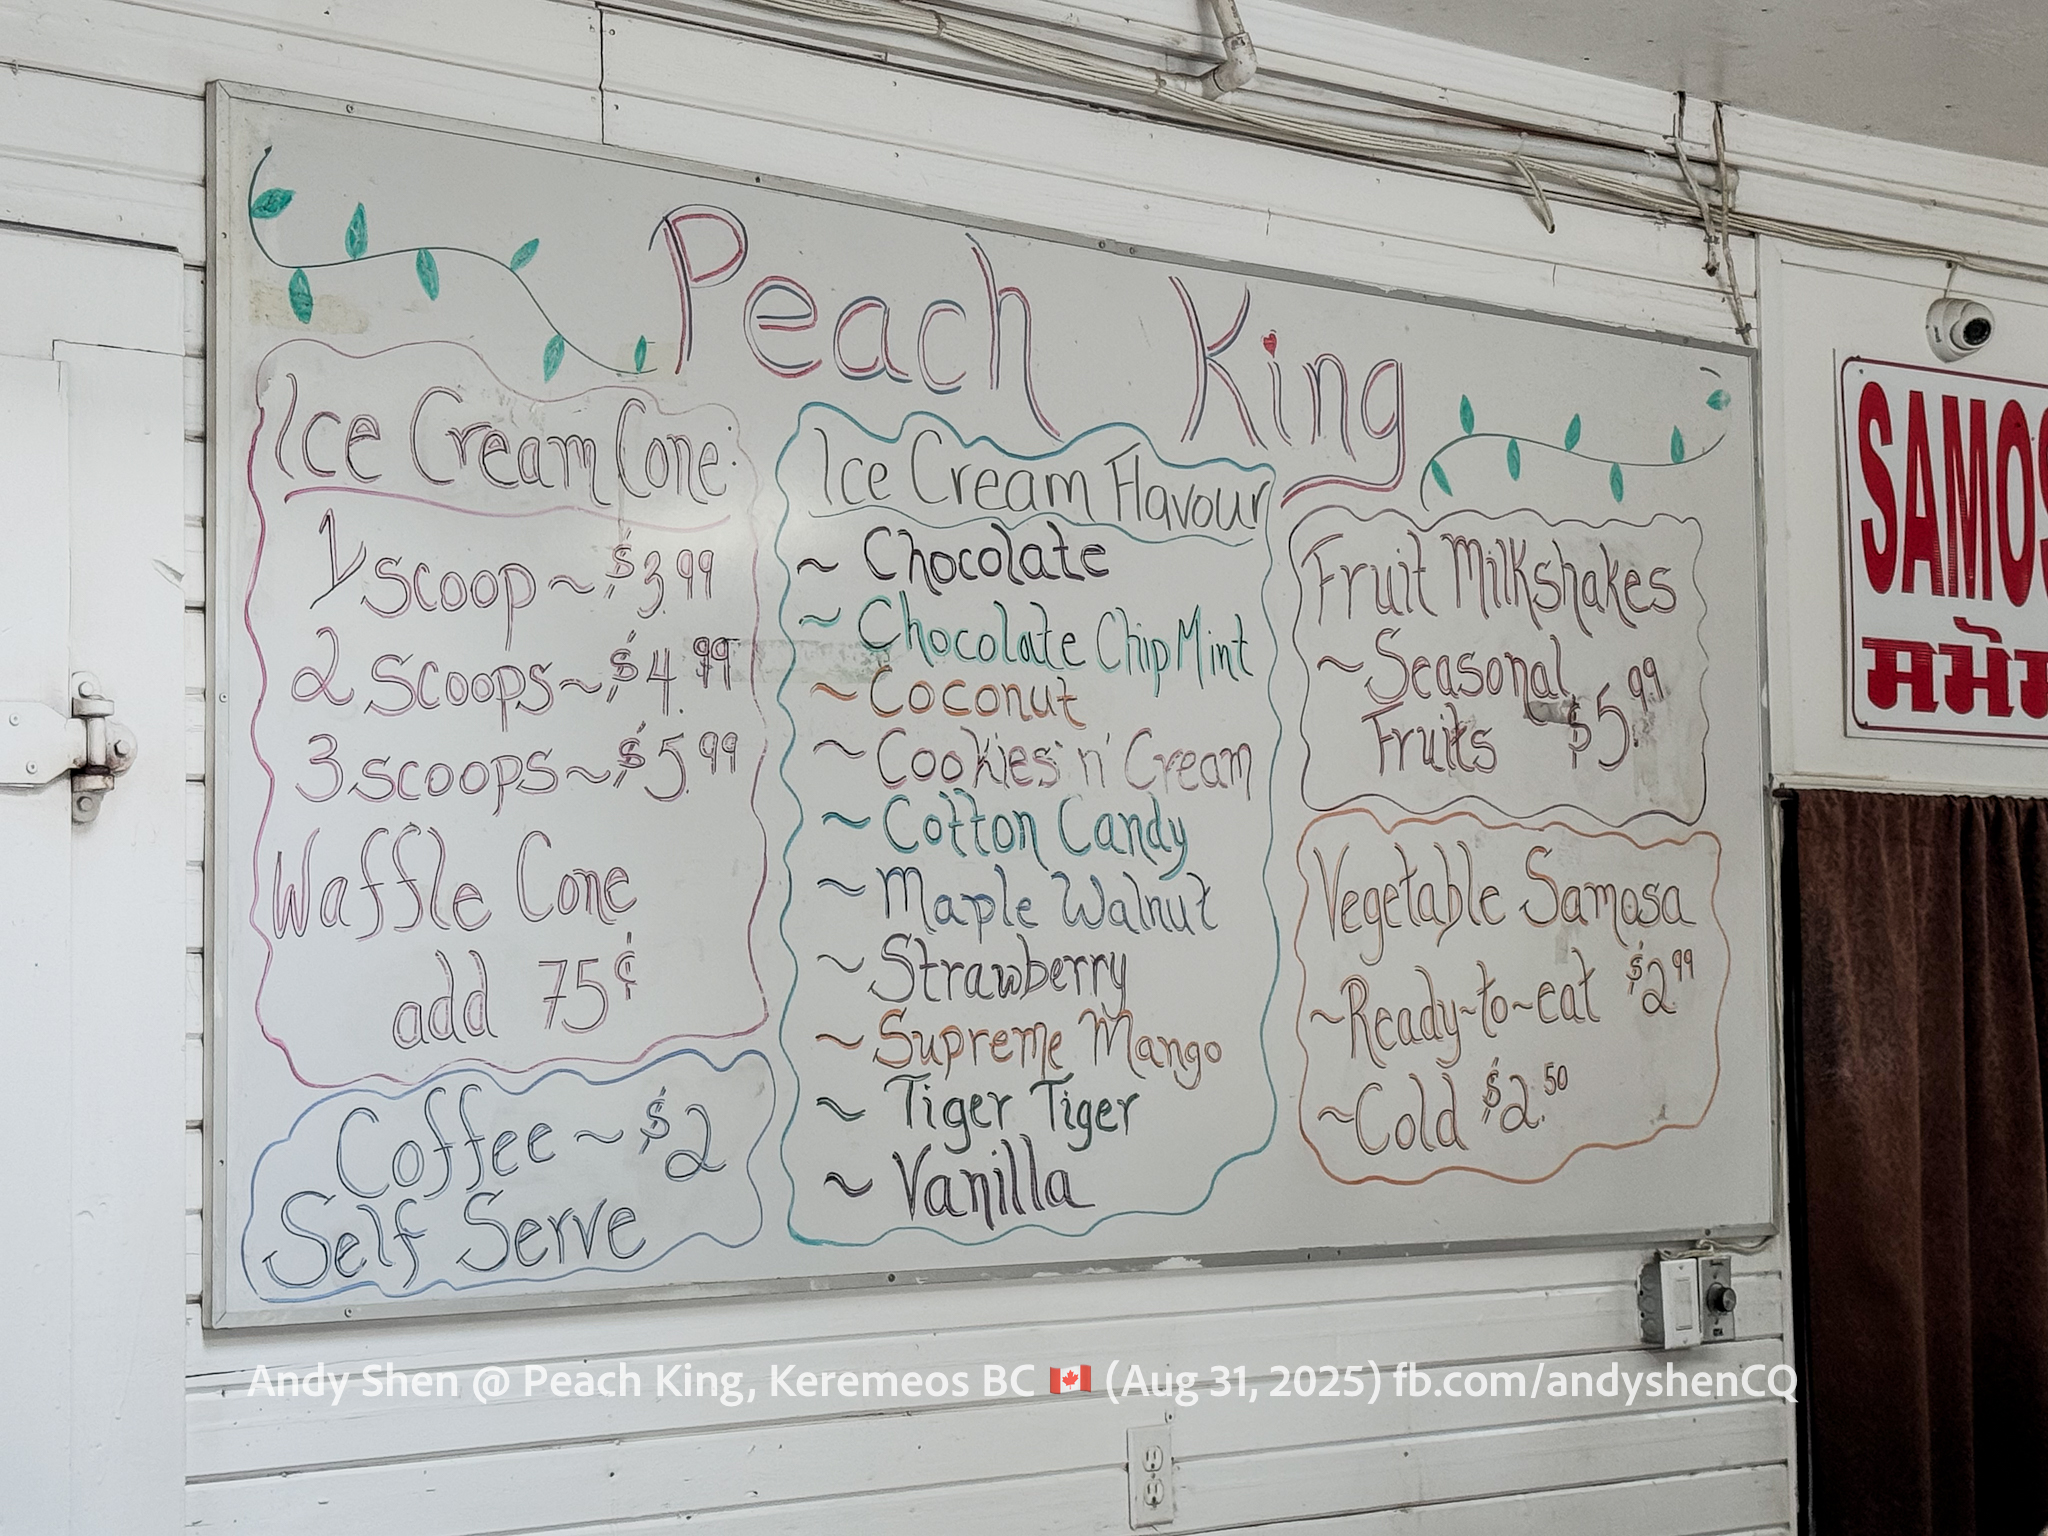 Peach King
Ice Cream Cone:
1 scoop ~ $3.99
2 scoops ~ $4.99
3 scoops ~ $5.99
Waffle Cone
add 75¢
Coffee ~ $2
Self Serve
Ice Cream Flavour
~ Chocolate
~ Chocolate Chip Mint
~ Coconut
~ Cookies 'n' Cream
~ Cotton Candy
~ Maple Walnut
~ Strawberry
~ Supreme Mango
~ Tiger Tiger
~ Vanilla
Fruit Milkshakes
~ Seasonal
Fruits $5.99
Vegetable Samosa
~Ready-to-eat $2.99
~Cold $2.50
SAMOS
ਸਮੋਸ
Andy Shen @ Peach King, Keremeos BC 🇨🇦 (Aug 31, 2025) fb.com/andyshenCQ